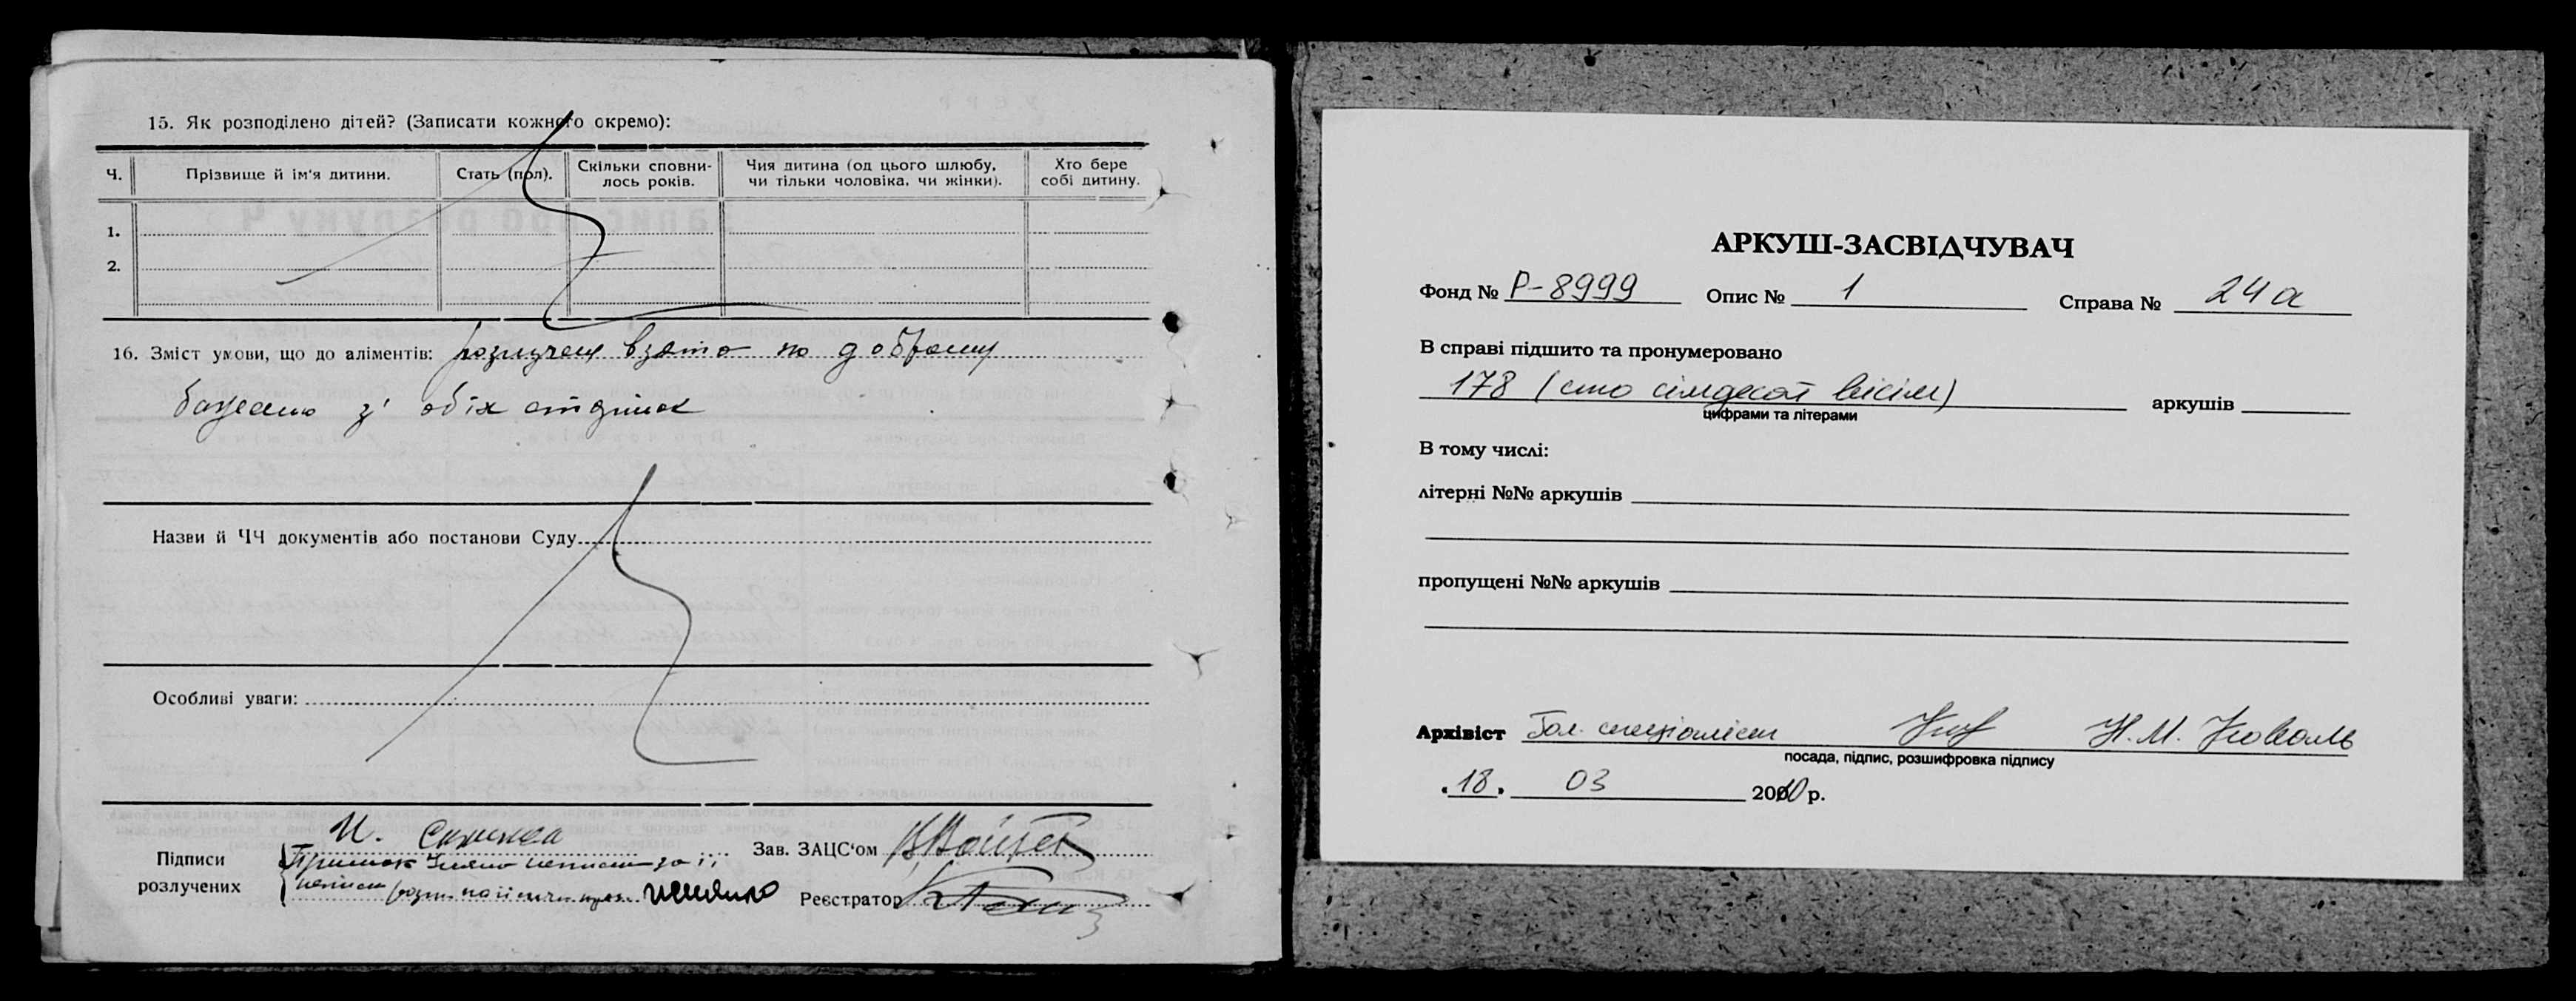 15. Як розподілено дітей? (Записати кожного окремо):
Ч. Прізвище й ім'я дитини. Стать (пол). Скільки сповнилось років. Чия дитина (од цього шлюбу, чи тільки чоловіка, чи жінки). Хто бере собі дитину.
1.
2.
16. Зміст умови, що до аліментів: взято по доброму
з' обіх
Назви й ЧЧ документів або постанови Суду
Особливі уваги:
Підписи розлучених
И.
за її
Зав. ЗАЦС'ом
Реєстратор
АРКУШ-ЗАСВІДЧУВАЧ
Фонд № Р-8999 Опис № 1 Справа № 24а
В справі підшито та пронумеровано
178 (сто сімдесят вісім) аркушів
цифрами та літерами
В тому числі:
літерні №№ аркушів
пропущені №№ аркушів
Архівіст Гол. спеціаліст Н.М. Коваль
посада, підпис, розшифровка підпису
"18" 03 2010 р.